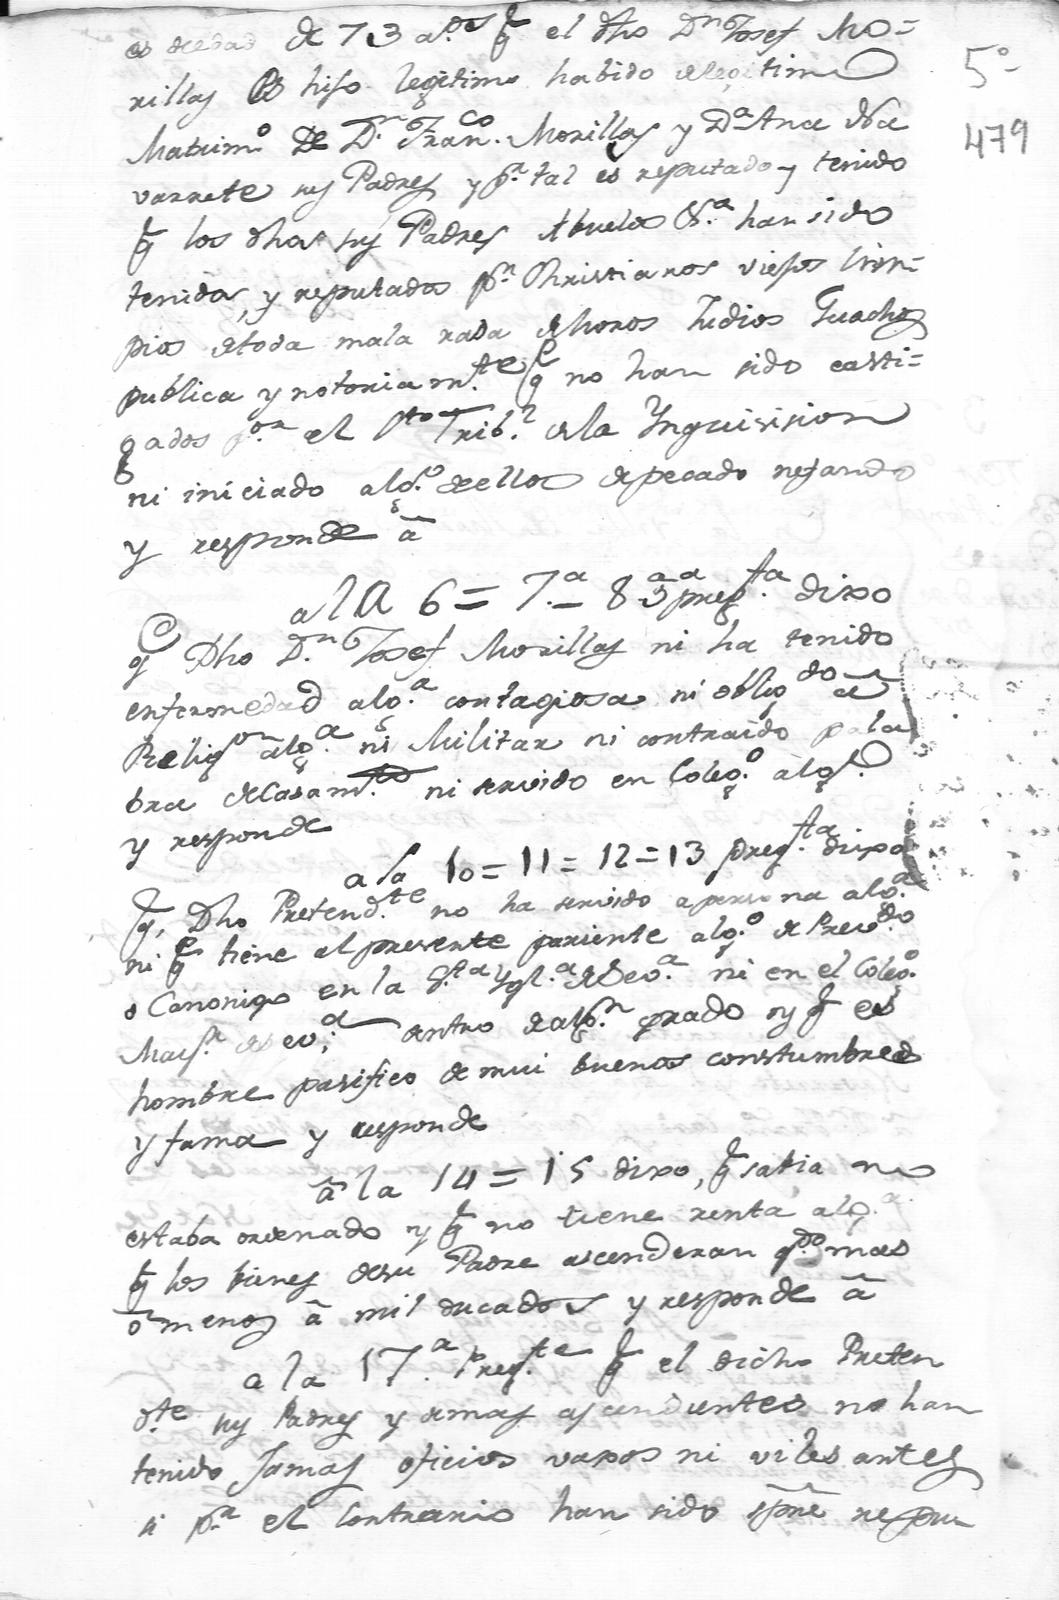 es de edad de 73 a.os q el dho Dn Josef Mo=
rillas es hijo legitimo habido de legitimo
Matrimo. De Dn. Franco. Morillas y Da. Ana Na
varrete sus Padres y pr. tal es reputado y tenido
q los dhos sus Padres Abuelos &a. han sido
tenidos, y reputados pr. Christianos viejos lim=
pios de toda mala rasa de Moros Judios
publica y notoriamte. q no han sido casti=
gados por. el Sto Tribl. de la Ynquisision
ni iniciado algo. de ellos de pecado nefando
y responde â
a la 6= 7.a= 8 pregta. dixo
q Dho Dn. Josef Morillas ni ha tenido
enfermedad alga. contagiosa ni obligdo a
Religon alga. ni Militar ni contraido pala
bra de Casamto. ni servido en Colego. algo.
y responde
a la 10= 11= 12=13 pregta. dixo
q, Dho Pretendte. no ha servido a persona alga.
ni q tiene al presente pariente algo. de Prevdo
o Canonigo en la Sta Ygla. de Seva. ni en el Colego.
Mayr. de Seva. dentro de algn. grado y q es
hombre pasifico de mui buenas constumbres
y fama y responde
â la 14= 15 dixo, q sabia no
estaba ordenado y q no tiene renta alga.
q los bienes de su Padre ascenderan qdo mas
o menos â mil ducados y responde â
a la 17a. Pregta. q el dicho Preten
dte sus Padres y demas asendientes no han
tenido Jamas oficios vaxos ni viles antes
si pr. el Contrario han sido spre repu
5o
479